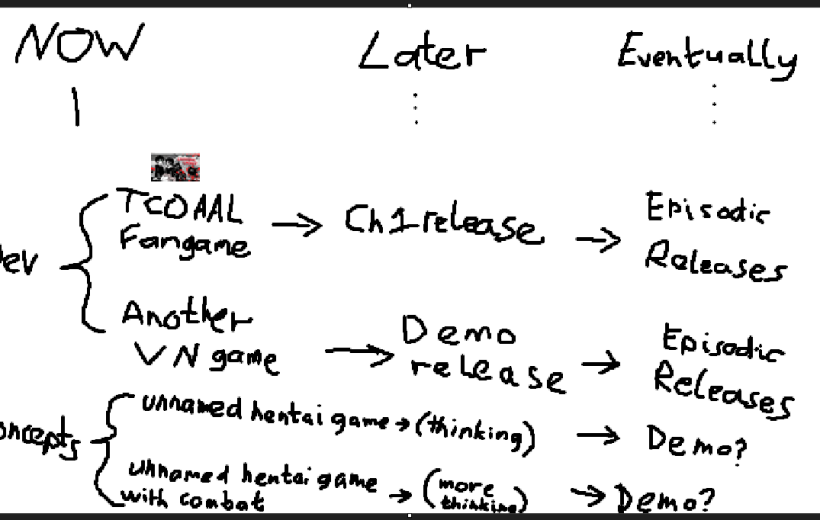 NOW Later Eventually
TCOAAL
Fangame → Ch1 release → Episodic
Releases
ev
Another
VN game → Demo
release → Episodic
Releases
oncepts
unnamed hentai game → (thinking) → Demo?
unnamed hentai game
with combat → (more
thinking) → Demo?